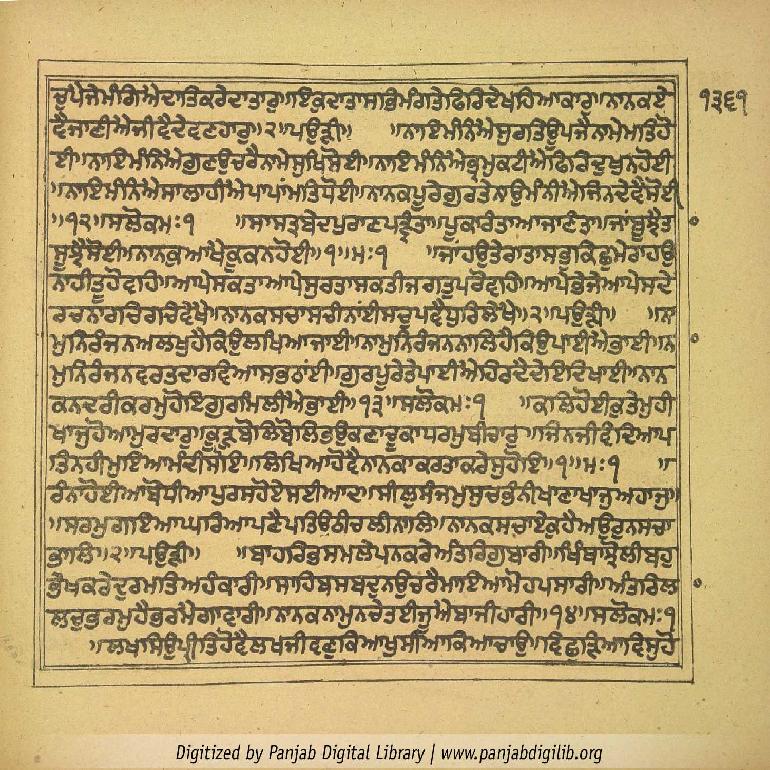 ਚੁਪੇਜੇਮੰਗਿਐਦਾਤਿਕਰੇਦਾਤਾਰੁ॥ਇਕੁਦਾਤਾਸਭਿਮੰਗਤੇਫਿਰਿਦੇਖਹਿਆਕਾਰੁ॥ਨਾਨਕਏ
ਵੈਜਾਣੀਐਜੀਵੈਦੇਵਣਹਾਰੁ॥੨॥ਪਉੜੀ॥ ॥ਨਾਇਮੰਨਿਐਸੁਰਤਿਊਪਜੈਨਾਮੇਮਤਿਹੋ
ਈ॥ਨਾਇਮੰਨਿਐਗੁਣਉਚਰੈਨਾਮੇਸੁਖਿਸੋਈ॥ਨਾਇਮੰਨਿਐਭ੍ਰਮੁਕਟੀਐਫਿਰਿਦੁਖੁਨਹੋਈ
॥ਨਾਇਮੰਨਿਐਸਾਲਾਹੀਐਪਾਪਾਂਮਤਿਧੋਈ॥ਨਾਨਕਪੂਰੇਗੁਰਤੇਨਾਉਮੰਨੀਐਜਿਨਦੇਵੈਸੋਈ
॥੧੨॥ਸਲੋਕਮਃ੧ ॥ਸਾਸਤ੍ਰਬੇਦਪੁਰਾਣਪੜ੍ਹੰਤਾ॥ਪੂਕਾਰੰਤਾਅਜਾਣੰਤਾ॥ਜਾਂਬੂਝੈਤ
ਸੂਝੈਸੋਈ॥ਨਾਨਕੁਆਖੈਕੂਕਨਹੋਈ॥੧॥ਮਃ੧ ॥ਜਾਂਹਉਤੇਰਾਤਾਸਭੁਕਿਛੁਮੇਰਾਹਉ
ਨਾਹੀਤੂਹੋਵਹਿ॥ਆਪੇਸਕਤਾਆਪੇਸੁਰਤਾਸਕਤੀਜਗਤੁਪਰੋਵਹਿ॥ਆਪੇਭੇਜੇਆਪੇਸਦੇ
ਰਚਨਾਰਚਿਰਚਿਵੇਖੈ॥ਨਾਨਕਸਚਾਸਚੀਨਾਂਈਸਚੁਪਵੈਧੁਰਿਲੇਖੈ॥੨॥ਪਉੜੀ॥ ॥ਨਾ
ਮੁਨਿਰੰਜਨਅਲਖੁਹੈਕਿਉਲਖਿਆਜਾਈ॥ਨਾਮੁਨਿਰੰਜਨਨਾਲਿਹੈਕਿਉਪਾਈਐਭਾਈ॥ਨਾ
ਮੁਨਿਰੰਜਨਵਰਤਦਾਰਵਿਆਸਭਠਾਂਈ॥ਗੁਰਪੂਰੇਤੇਪਾਈਐਹਿਰਦੈਦੇਇਦਿਖਾਈ॥ਨਾਨ
ਕਨਦਰੀਕਰਮੁਹੋਇਗੁਰਮਿਲੀਐਭਾਈ॥੧੩॥ਸਲੋਕਮਃ੧ ॥ਕਲਿਹੋਈਕੁਤੇਮੁਹੀ
ਖਾਜੁਹੋਆਮੁਰਦਾਰੁ॥ਕੂੜੁਬੋਲਿਬੋਲਿਭਉਕਣਾਚੂਕਾਧਰਮੁਬੀਚਾਰੁ॥ਜਿਨਜੀਵੰਦਿਆਪ
ਤਿਨਹੀਮੁਇਆਮੰਦੀਸੋਇ॥ਲਿਖਿਆਹੋਵੈਨਾਨਕਾਕਰਤਾਕਰੇਸੁਹੋਇ॥੧॥ਮਃ੧ ॥
ਰੰਨਾਹੋਈਆਬੋਧੀਆਪੁਰਸਹੋਏਸਈਆਦ॥ਸੀਲੁਸੰਜਮੁਸੁਚਭੰਨੀਖਾਣਾਖਾਜੁਅਹਾਜੁ॥
॥ਸਰਮੁਗਇਆਘਰਿਆਪਣੈਪਤਿਉਠੀਚਲੀਨਾਲੇ॥ਨਾਨਕਸਚਾਏਕੁਹੈਅਉਰੁਨਸਚਾ
ਭਾਲਿ॥੨॥ਪਉੜੀ॥ ॥ਬਾਹਰਿਭਸਮਲੇਪਨਕਰੇਅੰਤਰਿਗੁਬਾਰੀ॥ਖਿੰਥਾਝੋਲੀਬਹੁ
ਭੇਖਕਰੇਦੁਰਮਤਿਅਹੰਕਾਰੀ॥ਸਾਹਿਬਸਬਦੁਨਉਚਰੈਮਾਇਆਮੋਹਪਸਾਰੀ॥ਅੰਤਰਿਲਾ
ਲਚੁਭਰਮੁਹੈਭਰਮੈਗਾਵਾਰੀ॥ਨਾਨਕਨਾਮੁਨਚੇਤਈਜੂਐਬਾਜੀਹਾਰੀ॥੧੪॥ਸਲੋਕਮਃ੧
॥ਲਖਸਿਉਪ੍ਰੀਤਿਹੋਵੈਲਖਜੀਵਣੁਕਿਆਖੁਸੀਆਕਿਆਚਾਉ॥ਵਿਛੁੜਿਆਵਿਸੁਹੋ
੧੩੬੧
Digitized by Panjab Digital Library | www.panjabdigilib.org